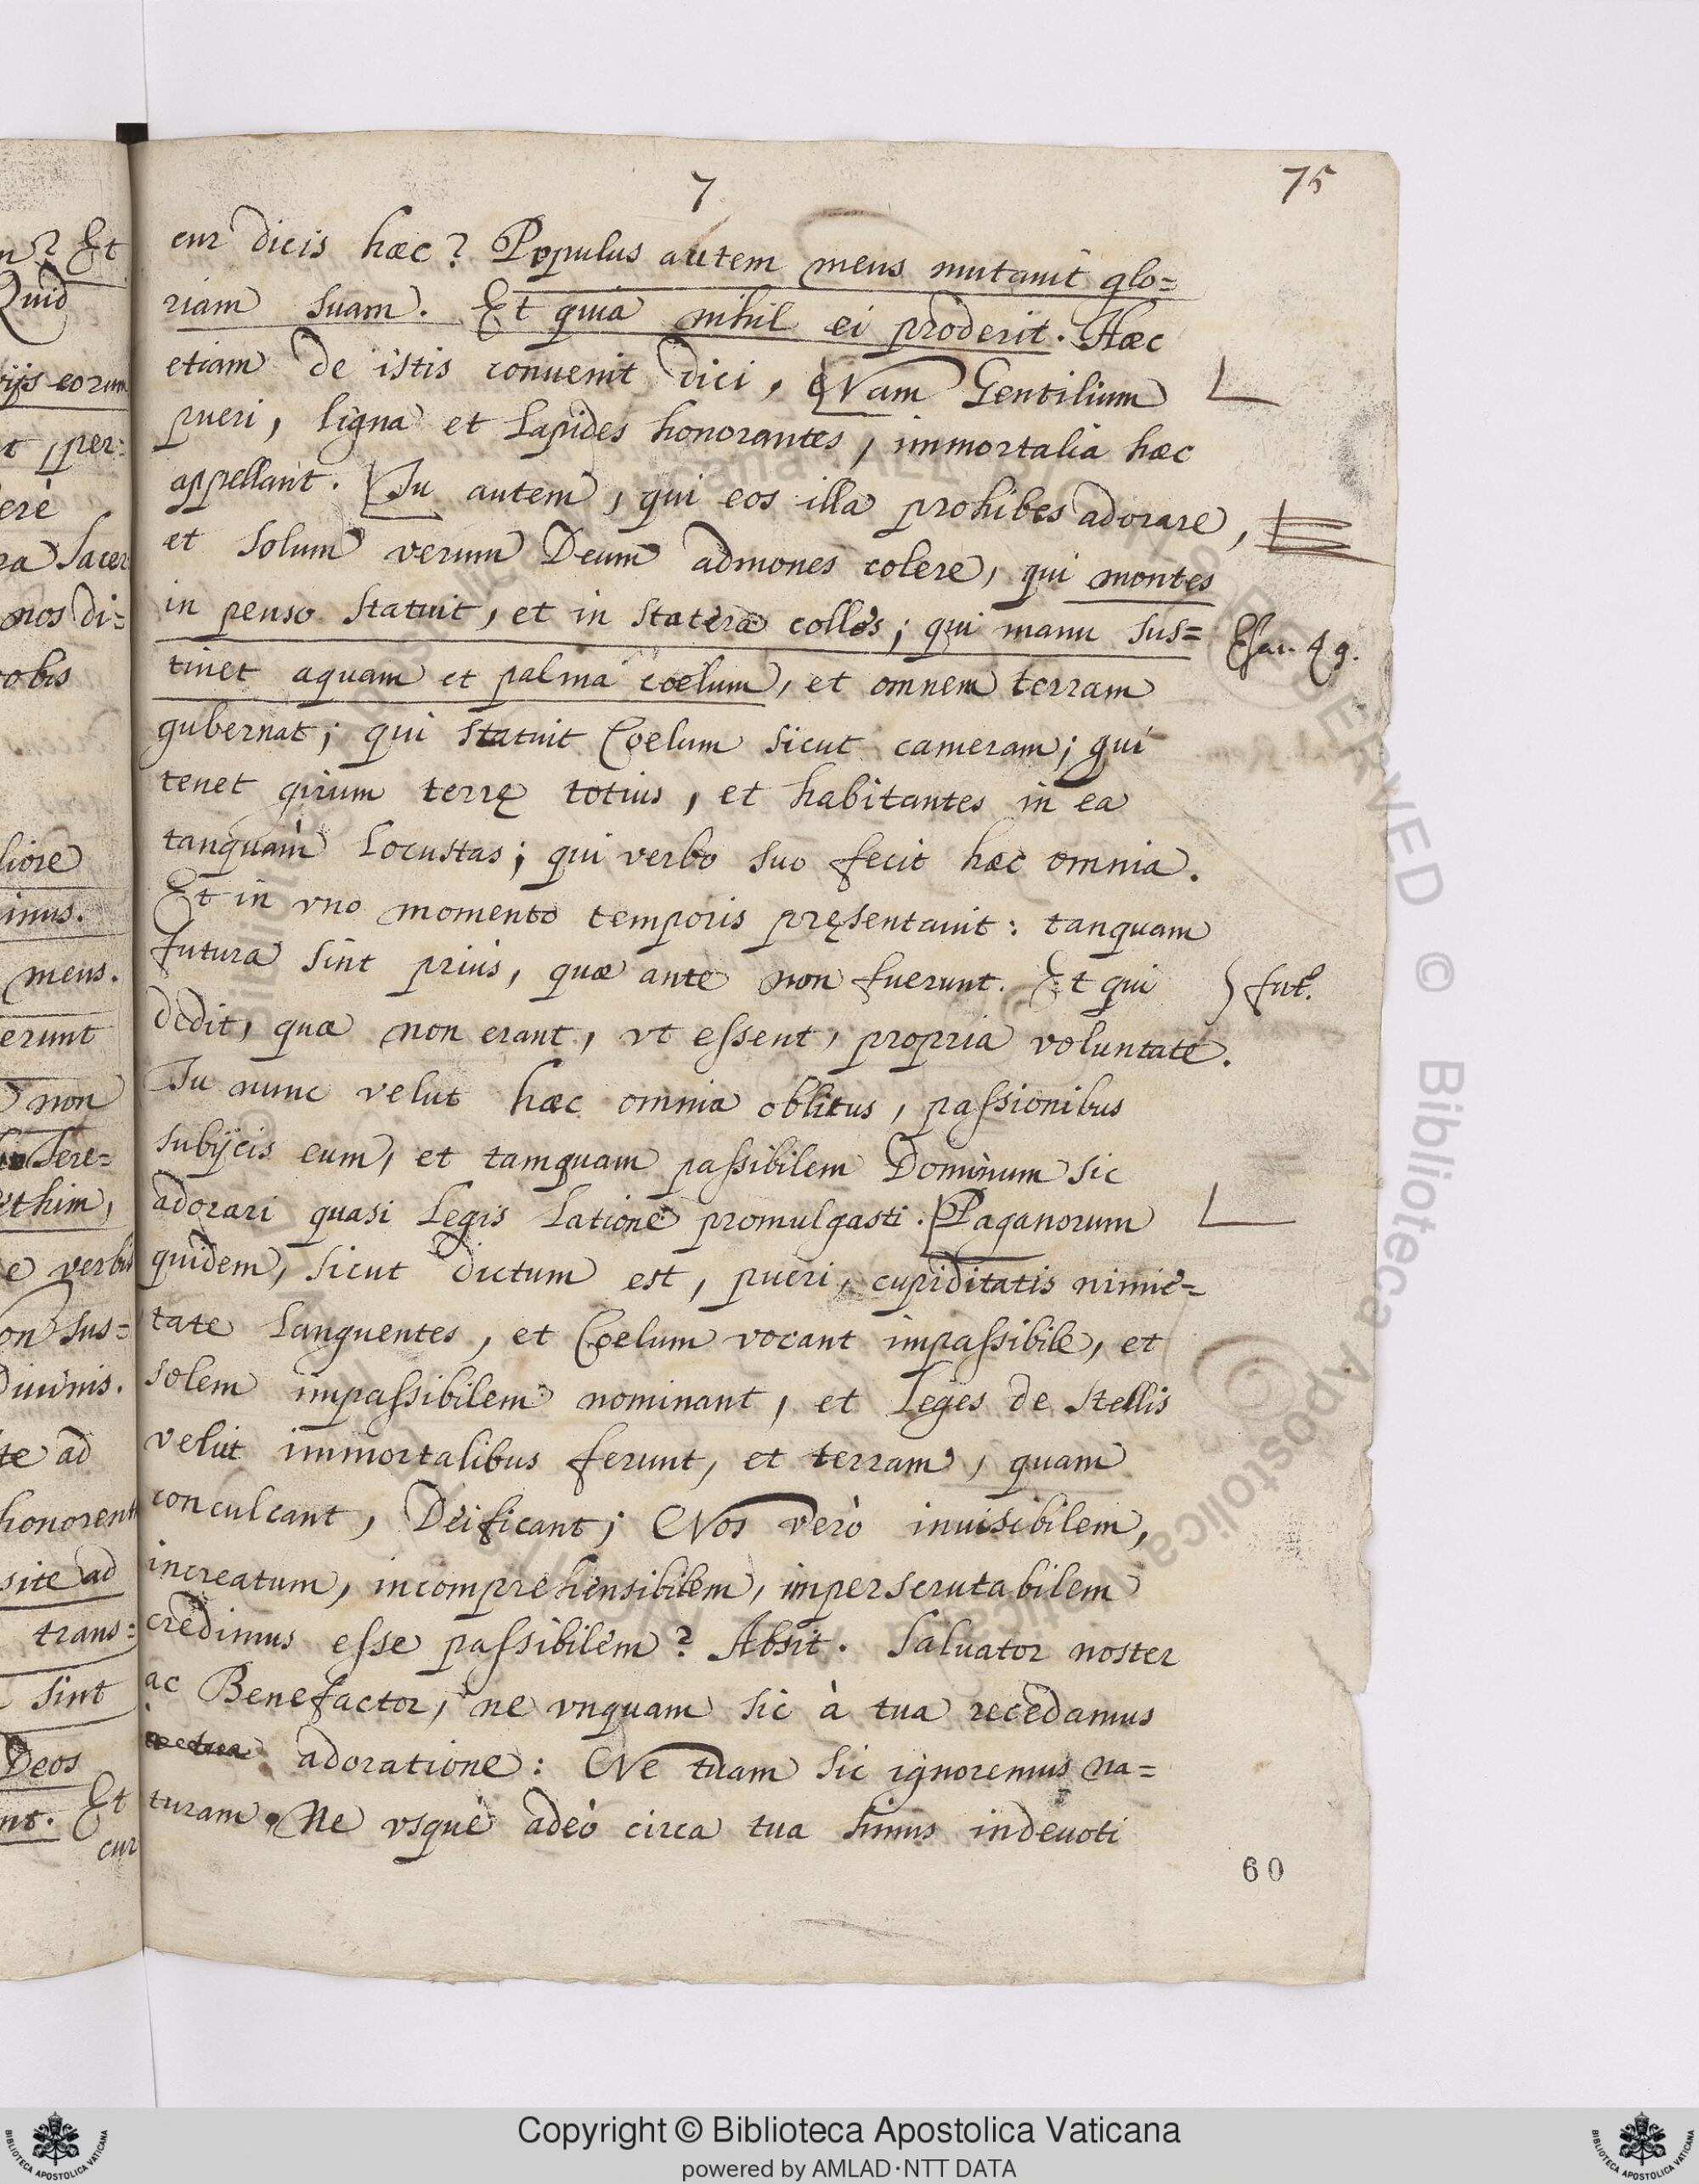 7
75
cur dicis hæc? Populus autem meus mutauit glo=
riam suam. Et quia nihil ei proderit. Hæc
etiam de istis conuenit dici, Nam Gentilium
pueri, ligna et Lapides honorantes, immortalia hæc
appellant. Tu autem, qui eos illa prohibes adorare,
et solum verum Deum admones colere, qui montes
in penso statuit, et in statera colles; qui manu sus=
Esai. 49.
tinet aquam et palma cœlum, et omnem terram
gubernat; qui statuit Cœlum sicut cameram; qui
tenet girum terrę totius, et habitantes in ea
tanquam Locustas; qui verbo suo fecit hæc omnia.
Et in vno momento temporis pręsentauit: tanquam
futura sint prius, quæ ante non fuerunt. Et qui
dedit, quæ non erant, vt essent, propria voluntate.
Tu nunc velut hæc omnia oblitus, passionibus
subijcis eum, et tamquam passibilem Dominum sic
adorari quasi Legis Latione promulgasti. Paganorum
quidem, sicut dictum est, pueri, cupiditatis nimie=
tate Languentes, et Cœlum vocant impassibile, et
solem impassibilem nominant, et Leges de stellis
velut immortalibus ferunt, et terram, quam
conculcant, Deificant; Nos verò inuisibilem,
increatum, incomprehensibilem, imperscrutabilem
credimus esse passibilem? Absit. Saluator noster
ac Benefactor, ne vnquam sic à tua recedamus
adoratione: Ne tuam sic ignoremus na=
turam. Ne vsque adeò circa tua simus indeuoti
60
n? Et
Quid
ijs eorum
t, per=
ere
ra Sacer
nos di=
obis
liore
inus.
meus.
erunt
non
Sere=
ethim,
e verbis
on sus=
Diuinis.
te ad
honorent
site ad
trans=
sint
Deos
nt. Et
cur
Copyright © Biblioteca Apostolica Vaticana
powered by AMLAD·NTT DATA